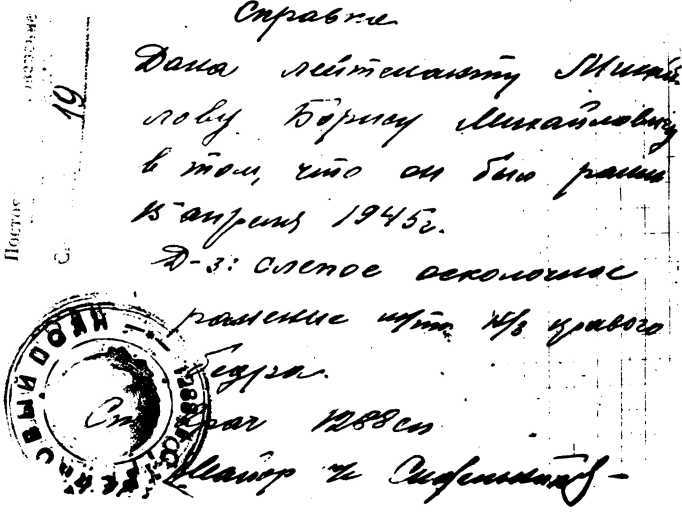 Справка
Дана лейтенанту Михай
лову Борису Михайловичу
в том, что он был ранен
15 апреля 1945г.
Д-з: слепое осколочное
ранение м/тк н/з правого
бедра.
Ст. врач 1288сп
Майор м/с
19